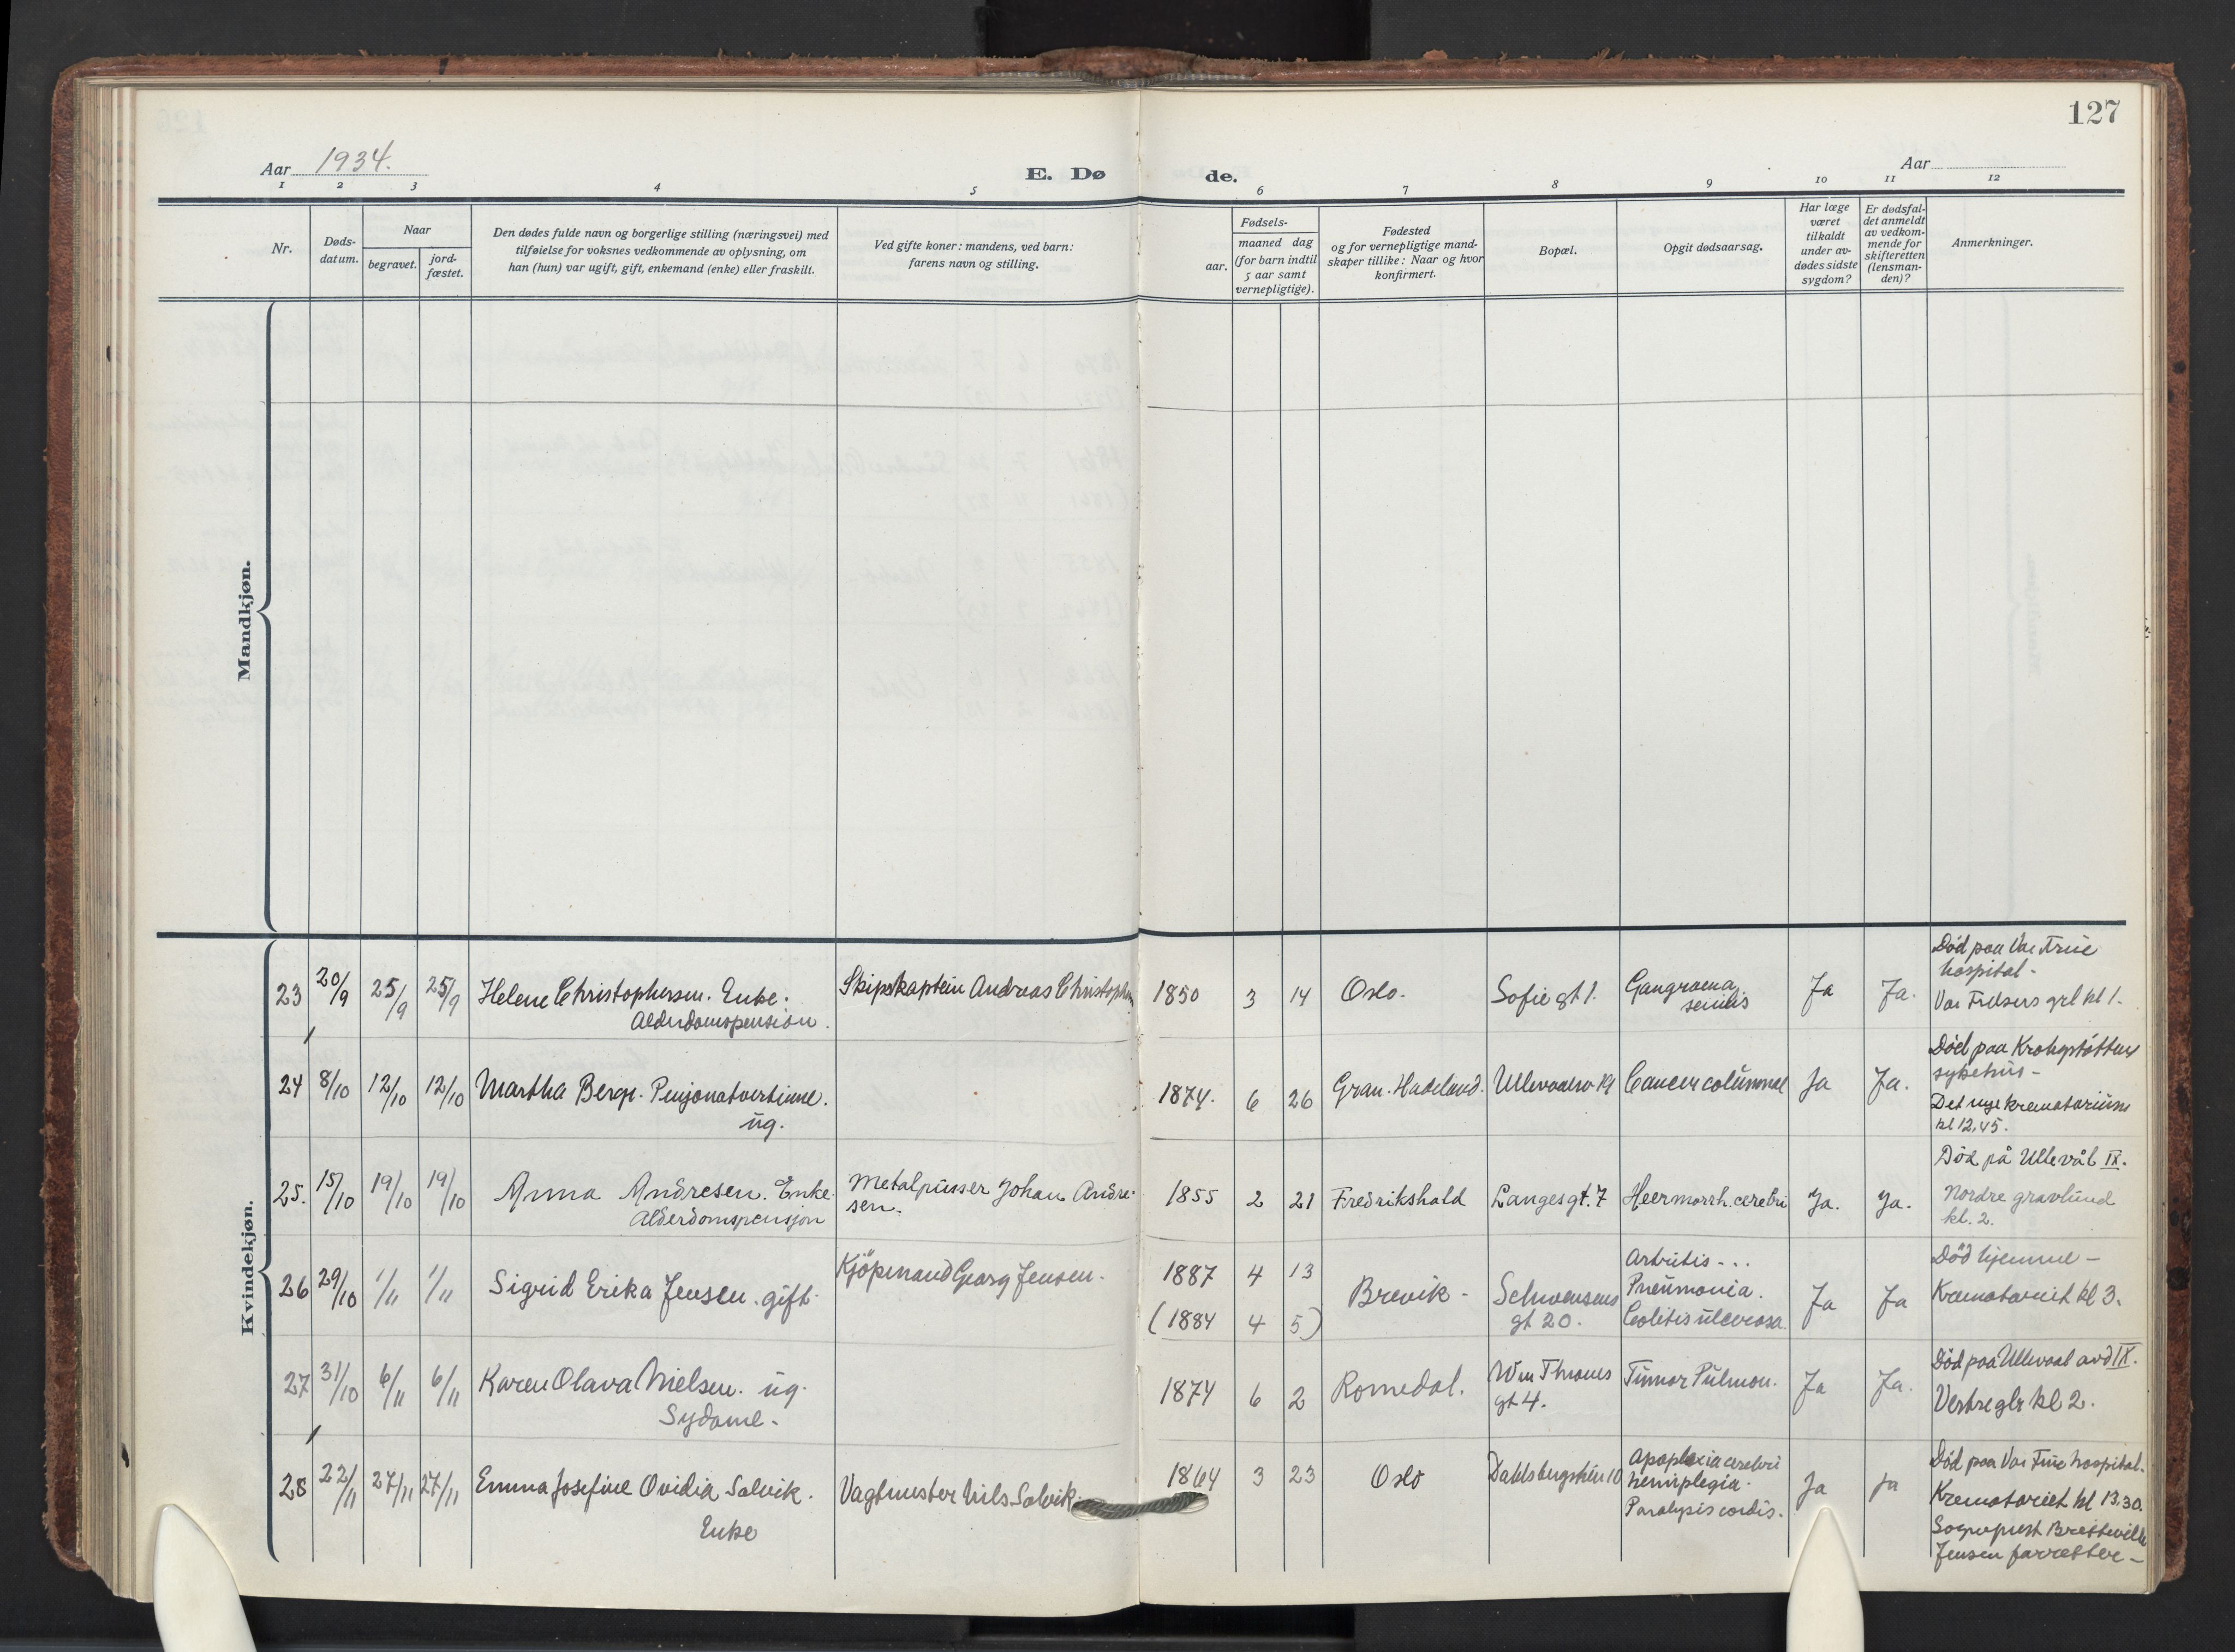 127
Aar 1934.
E. Dø
de.
Aar
1 2 3 4 5 6 7 8 9 10 11 12
Nr.
Døds-
datum.
Naar
begravet.
jord-
fæstet.
Den dødes fulde navn og borgerlige stilling (næringsvei) med
tilføielse for voksnes vedkommende av oplysning, om
han (hun) var ugift, gift, enkemand (enke) eller fraskilt.
Ved gifte koner: mandens, ved barn:
farens navn og stilling.
Fødsels-
aar.
maaned dag
(for barn indtil
5 aar samt
vernepligtige).
Fødested
og for vernepligtige mand-
skaper tillike: Naar og hvor
konfirmert.
Bopæl.
Opgit dødsaarsag.
Har læge
været
tilkaldt
under av-
dødes sidste
sygdom?
Er dødsfal-
det anmeldt
av vedkom-
mende for
skifteretten
(lensman-
den)?
Anmerkninger.
Mandkjøn.
Kvindekjøn.
23 20/9 25/9 25/9 Helene Christophersen. Enke.
Alderdomspension.
Skipskaptein Andreas Christophersen
1850 3 14 Oslo. Sofie gt 1. Gangraena
senilis
Ja Ja.
Død paa Vor Frue
hospital -
Vor Frelsers grl kl 1.
24 8/10 12/10 12/10 Martha Berg. Pensjonatvertinne.
ug.
1874. 6 26 Gran. Hadeland. Ullevaalsv Cancer columnae Ja Ja.
Död paa Krohgstøttens
sykehus -
Det nye krematorium
kl 12,45.
25. 15/10 19/10 19/10 Anna Andresen. Enke.
Alderdomspensjon
Metalpusser Johan Andre-
sen.
1855 2 21 Fredrikshald Langesgt. 7 Heermorrh. cerebri Ja. Ja.
Död på Ullevål IX.
Nordre gravlund
kl. 2.
26 29/10 1/11 1/11 Sigrid Erika Jensen. gift.
Kjöpmand Georg Jensen.
1887 4 13
(1884 4 5)
Brevik - Schwensens
gt 20.
Artritis - ..
Pneumonia.
Colitis ulcerosa.
Ja Ja
Död hjemme -
Krematoriet kl 3.
27 31/10 6/11 6/11 Karen Olava Nielsen. ug.
Sydame.
1874 6 2 Romedal. Wm Thranes
gt 4.
Tumor Pulmon. Ja Ja.
Död paa Ullevaal avd IX.
Vestre glr kl 2.
28 22/11 27/11 27/11 Emma Josefine Ovidia Solvik.
Enke
Vagtmester Nils Solvik.
1864 3 23 Oslo Dahlsbergstien 10 Apoplexia cerebri
hemiplegia.
Paralysis cordis.
Ja Ja
Död paa Vor Frue hospital.
Krematoriet kl 13.30.
Sogneprest Bretteville
Jensen forretter -